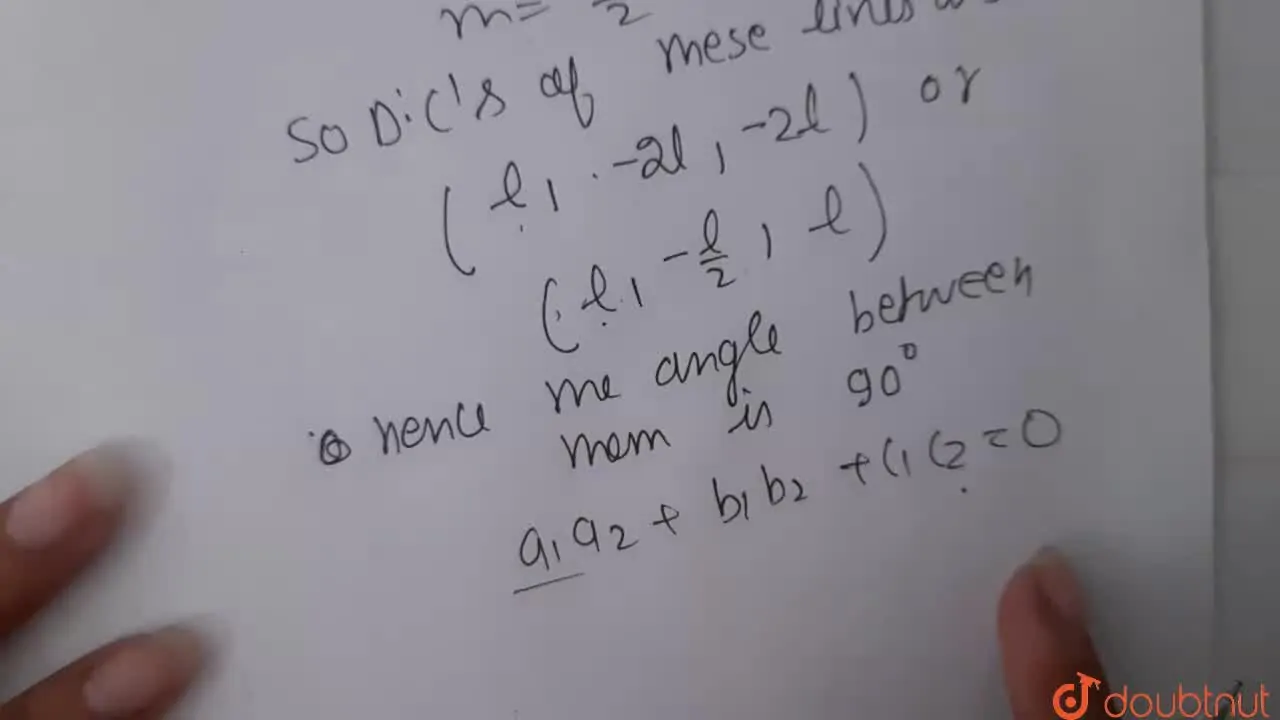 m= /2
So D.C's of these lines
(l, -2l, -2l) or
(l, -l/2, l)
hence the angle between
them is 90°
a₁a₂ + b₁b₂ + c₁c₂ = 0
doubtnut